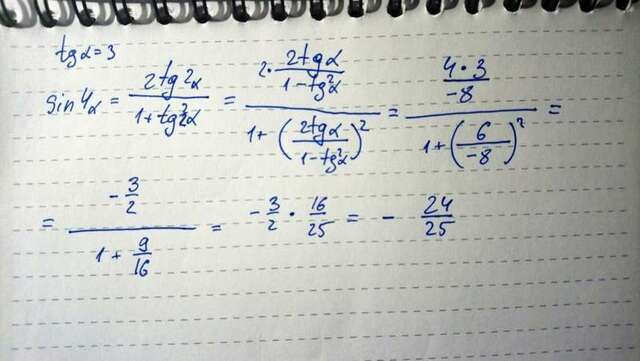 tgα=3
sin4α = \frac{2tg2α}{1+tg²2α} = \frac{2·\frac{2tgα}{1-tg²α}}{1+(\frac{2tgα}{1-tg²α})²} = \frac{\frac{4·3}{-8}}{1+(\frac{6}{-8})²} =
= \frac{-\frac{3}{2}}{1+\frac{9}{16}} = -\frac{3}{2}·\frac{16}{25} = -\frac{24}{25}